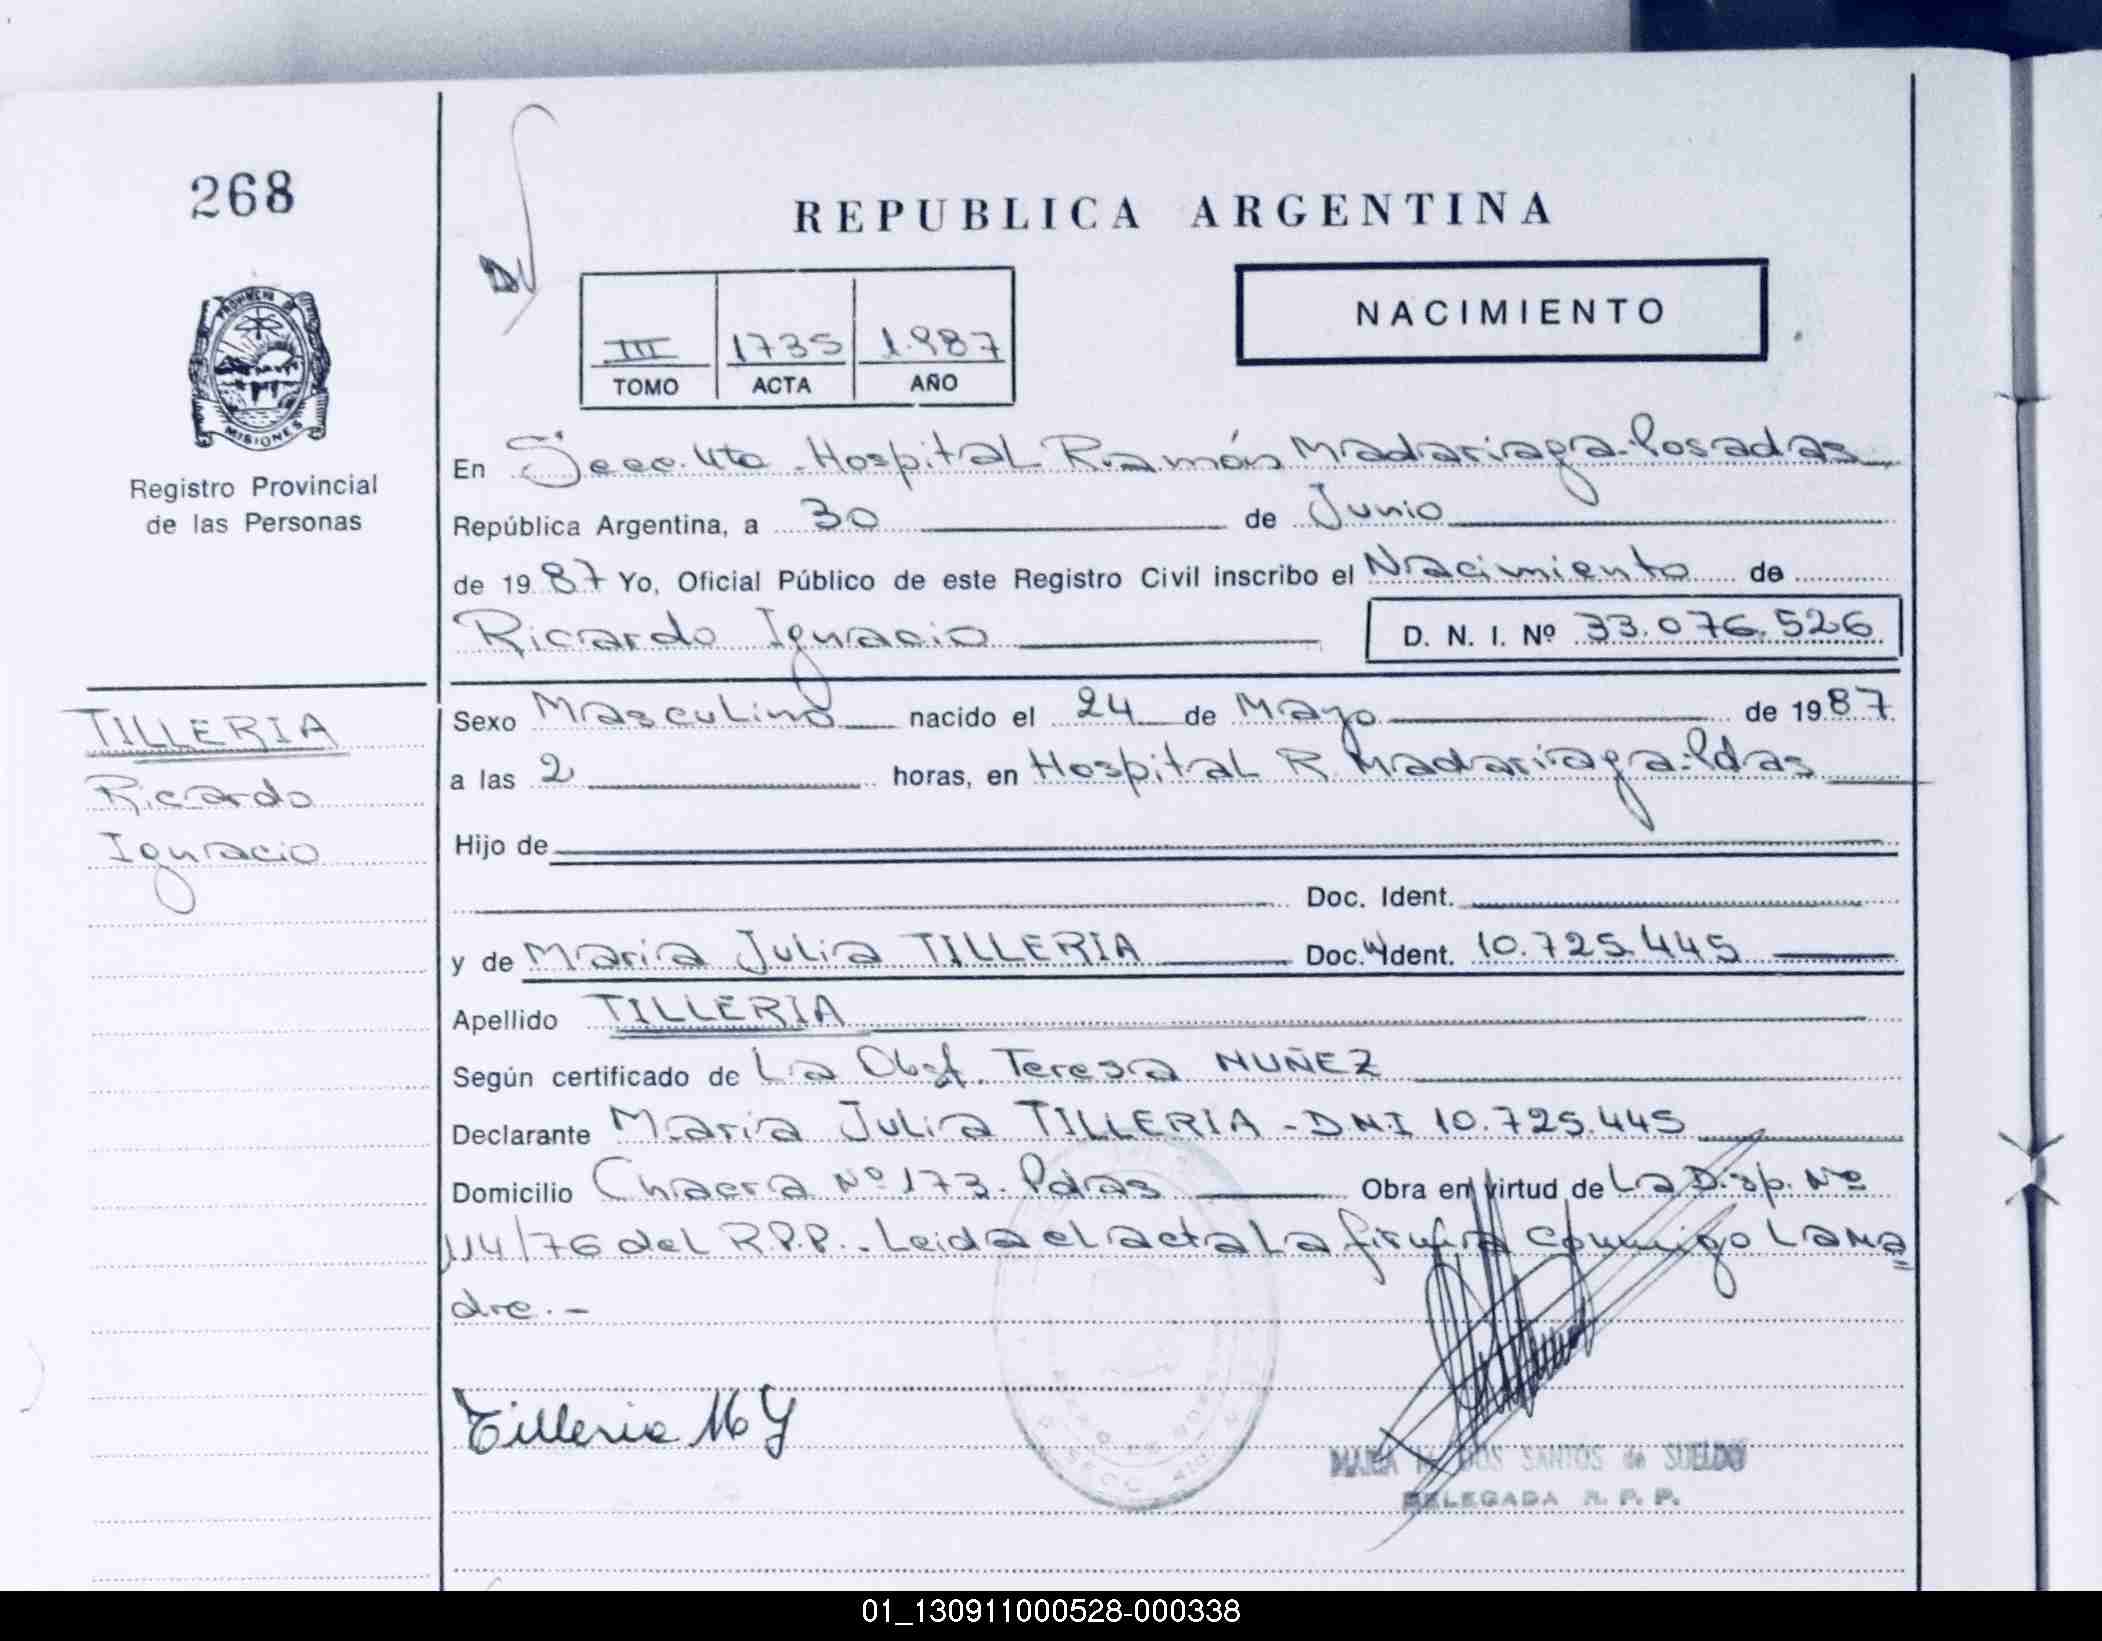 268
REPUBLICA ARGENTINA
NACIMIENTO
III 1735 1.987
TOMO ACTA AÑO
PROVINCIA
MISIONES
Registro Provincial
de las Personas
En Secc. 4ta. Hospital Ramón Madariaga-Posadas
República Argentina, a 30 de Junio
de 1987 Yo, Oficial Público de este Registro Civil inscribo el Nacimiento de
Ricardo Ignacio D. N. I. Nº 33.076.526
TILLERIA
Ricardo
Ignacio
Sexo Masculino nacido el 24 de Mayo de 1987
a las 2 horas, en Hospital R. Madariaga-Pdas
Hijo de
Doc. Ident.
y de Maria Julia TILLERIA Doc. Ident. 10.725.445
Apellido TILLERIA
Según certificado de La Obst. Teresa NUÑEZ
Declarante Maria Julia TILLERIA - DNI 10.725.445
Domicilio Chacra Nº 173. Pdas Obra en virtud de La Disp. Nº
114/76 del R.P.P.. Leida el acta La firma conmigo La Ma
dre.-
Tilleria M J
MARIA DOS SANTOS de SUELDO
DELEGADA R. P. P.
01_130911000528-000338